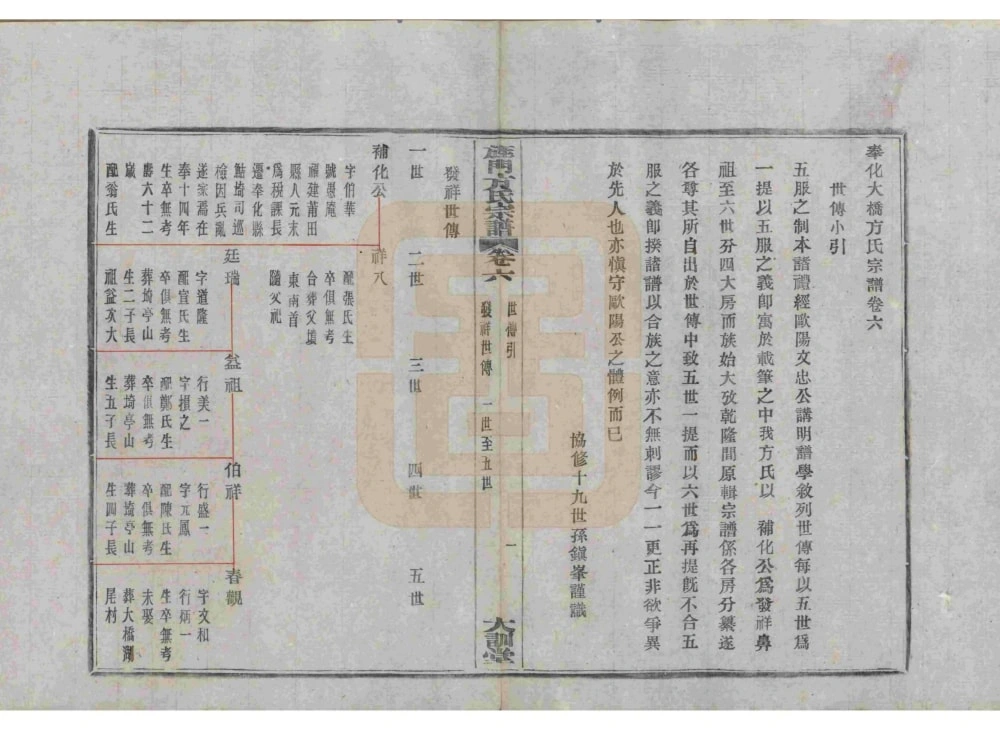 奉化大橋方氏宗譜卷六
世傳小引
五服之制本諸禮經歐陽文忠公講明譜學敘列世傳每以五世爲
一提以五服之義卽寓於載筆之中我方氏以 補化公爲發祥鼻
祖至六世分四大房而族始大攷乾隆間原輯宗譜係各房分纂遂
各尊其所自出於世傳中致五世一提而以六世爲再提旣不合五
服之義卽揆諸譜以合族之意亦不無剌謬今一一更正非欲爭異
於先人也亦愼守歐陽公之體例而已
協修十九世孫鎭峯謹識
方氏宗譜 卷六 世傳引 發祥世傳 一世至五世 一 大訓堂
發祥世傳
一世 二世 三世 四世 五世
補化公
字伯華
號愚庵
福建莆田
縣人元末
爲稅課長
遷奉化縣
鮚埼司巡
檢因兵亂
遂家焉在
奉十四年
生卒無考
壽六十二
歲
配翁氏生
祥八
配張氏生
卒俱無考
台葬父墳
東南首
隨父祀
廷瑞
字道隆
配宣氏生
卒俱無考
葬埼亭山
生二子長
祖益次大
益祖
行美一
字損之
配鄭氏生
卒俱無考
葬埼亭山
生五子長
伯祥
行盛一
字元鳳
配陳氏生
卒俱無考
葬埼亭山
生四子長
春觀
字文和
行炳一
生卒無考
未娶
葬大橋瀾
尾村